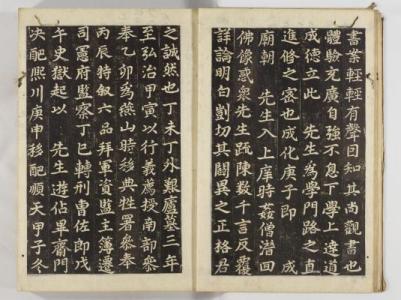 書業輕輕有聲因知其尚觀書也
體驗充廣自强不息下學上達道
成德立此 先生為學門路之直
進修之密也成化庚子即 成
廟朝 先生入上庠時姦僧潛回
佛像惑衆先生䟽陳數千言反覆
詳論明白剴切其闢異之正格君
之誠然也丁未丁外艱廬墓三年
至弘治甲寅以行義薦授南部叅
奉乙卯為燕山時移典牲署叅奉
丙辰特叙六品拜軍資監主簿遷
司憲府監察丁巳轉刑曹佐郎戊
午史獄起以 先生遊佔畢齋門
决配熙川庚申移配順天甲子冬